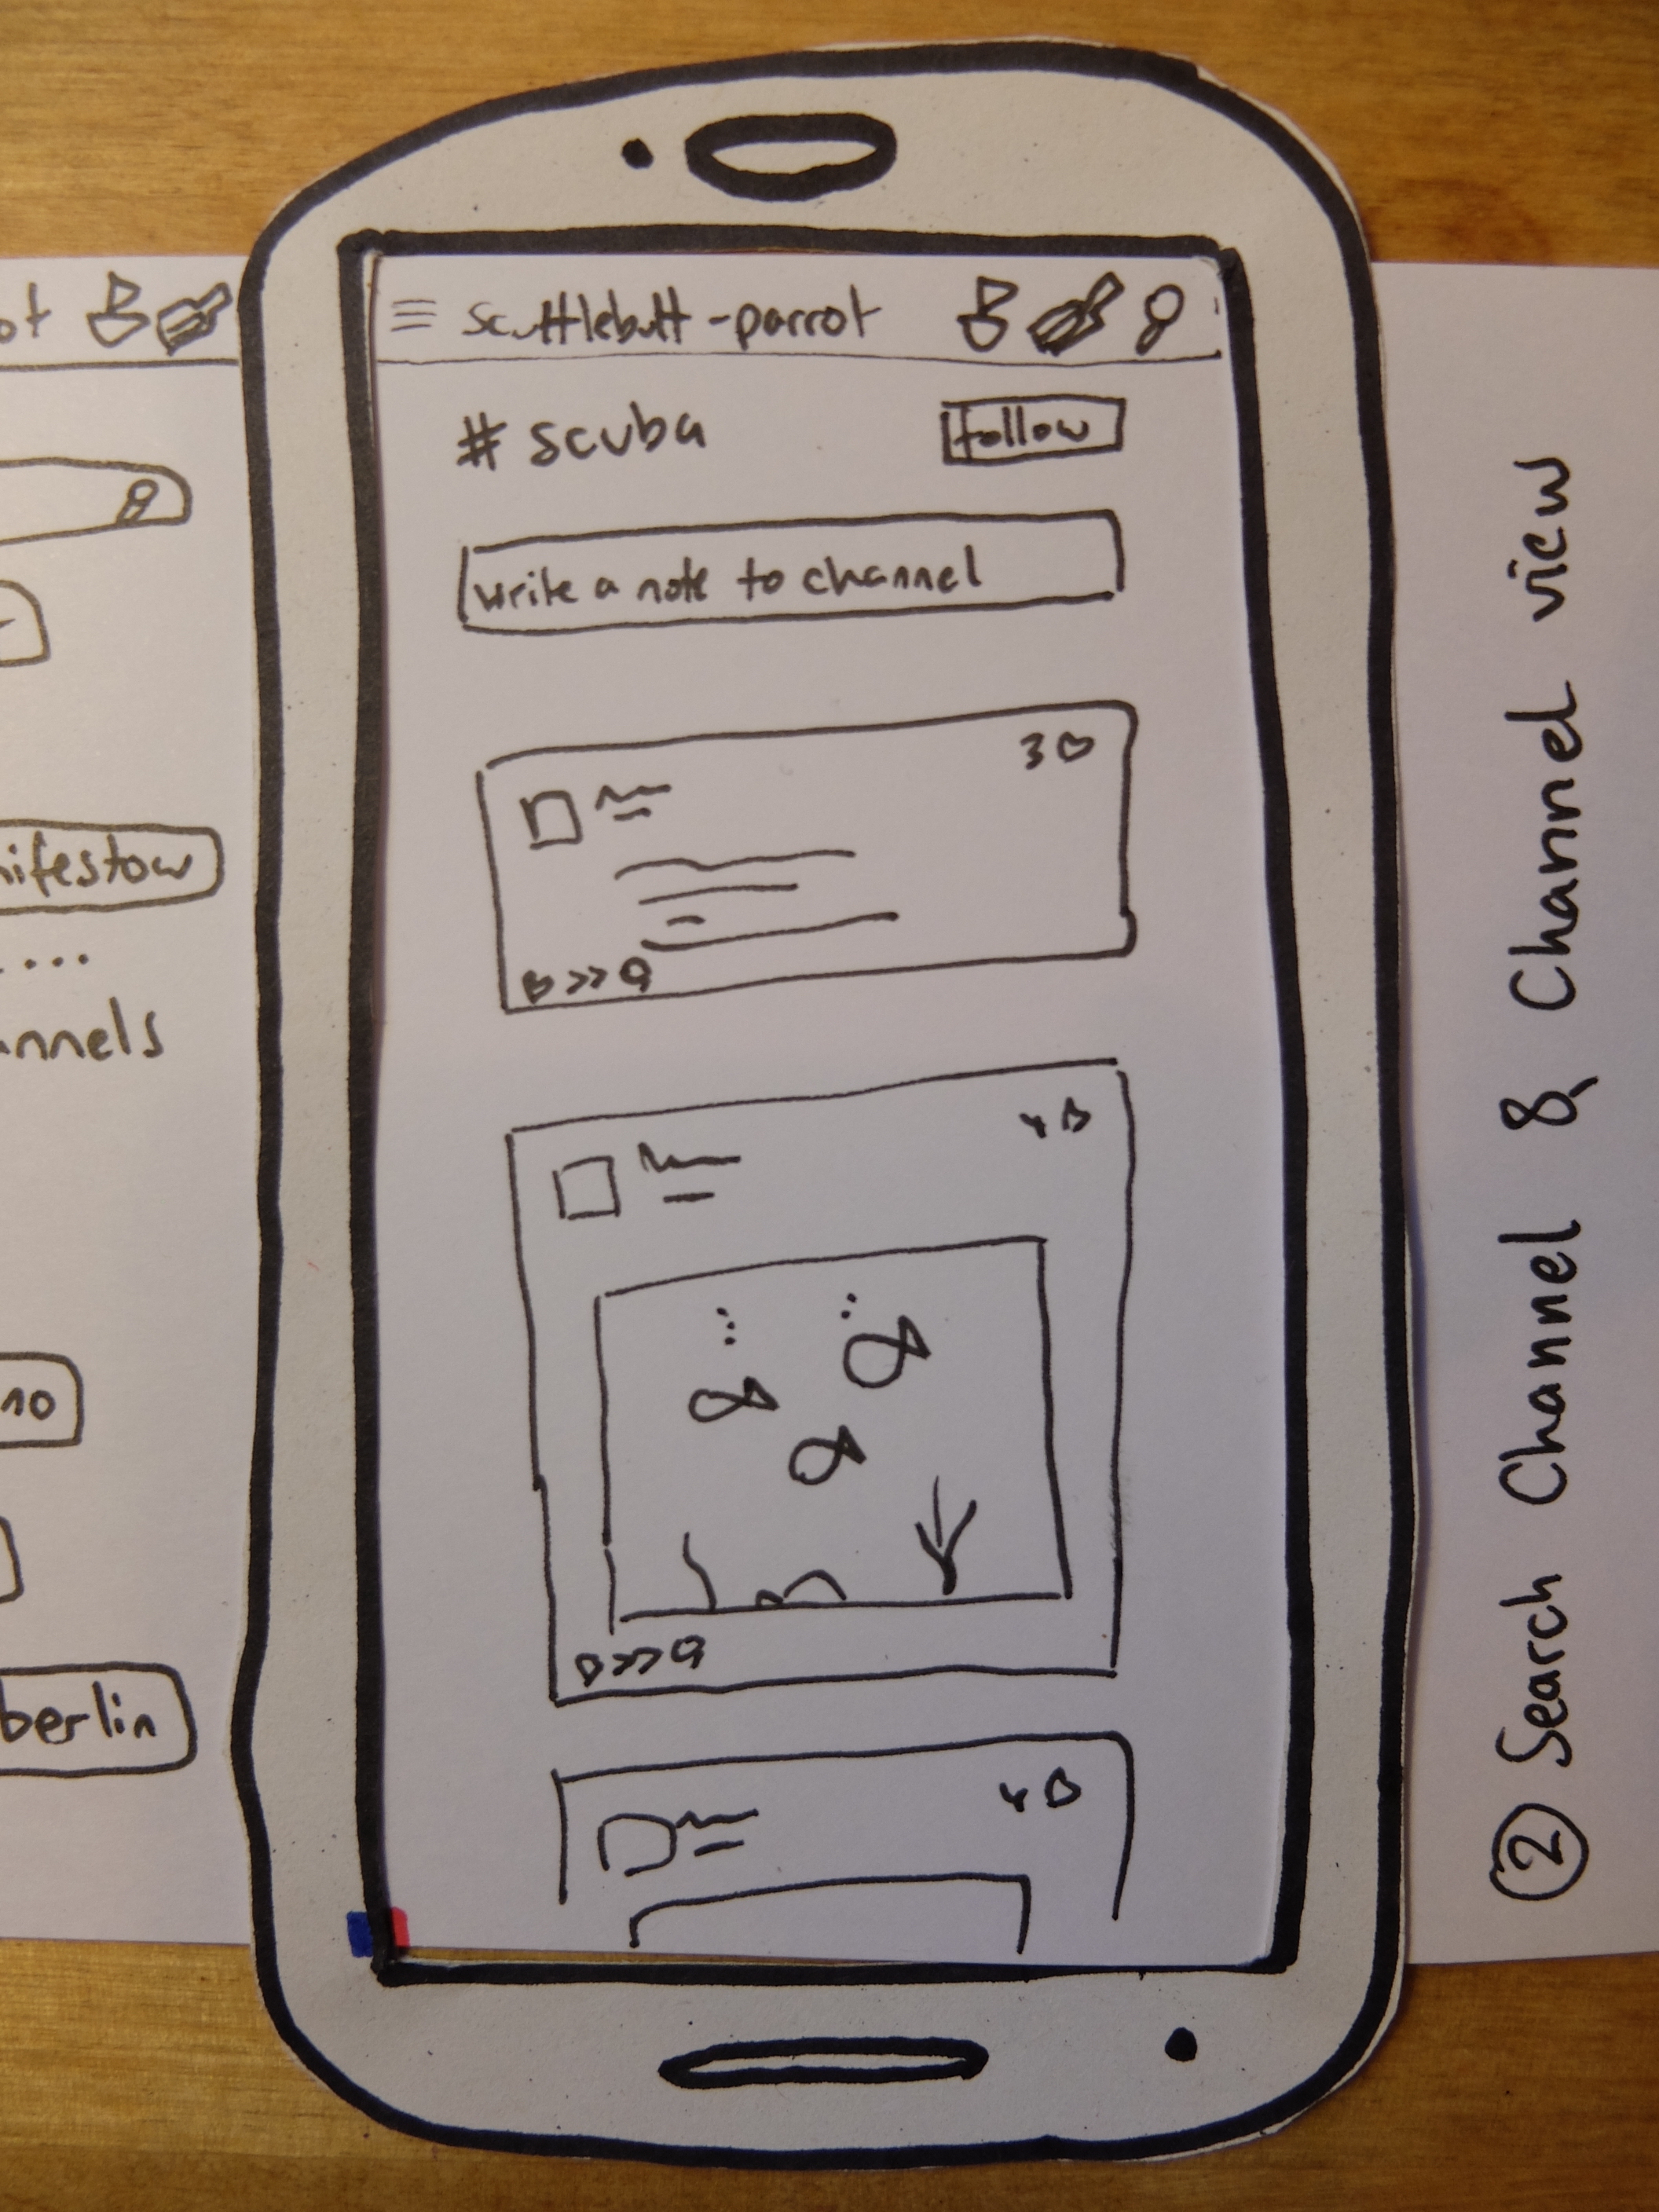 ot
nifestow
....
annels
no
berlin
scuttlebutt-parrot
# scuba
follow
write a note to channel
3
4
4
② Search Channel & Channel view